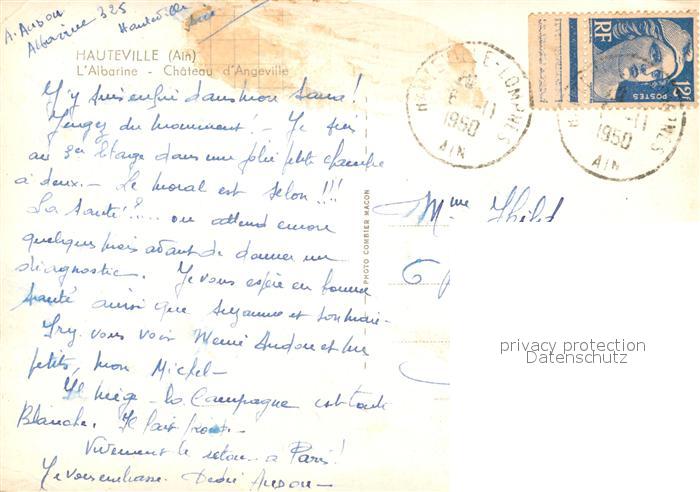 A. Audou
Albarine 325
Hauteville
Ain
HAUTEVILLE (Ain)
L'Albarine - Château d'Angeville
J'y suis enfin dans mon Sana!
Jugez du monument! - Je suis
au 3ème Etage dans une jolie petite chambre
à deux. - Le moral est selon!!!
La Santé!?... on attend encore
quelques mois avant de donner un
diagnostic. Je vous espère en bonne
santé ainsi que Suzanne et son mari-
vous voir Mémé Audou et les
petits, mon Michel-
Il neige - La Campagne est toute
Blanche. Il fait froid.-
Vivement le retour à Paris!
Je vous embrasse. Dédé Audou-
PHOTO COMBIER MACON
HAUTEVILLE-LOMPNES
-11
1950
AIN
-11
1950
AIN
RF
POSTES
12F
Mme
privacy protection
Datenschutz